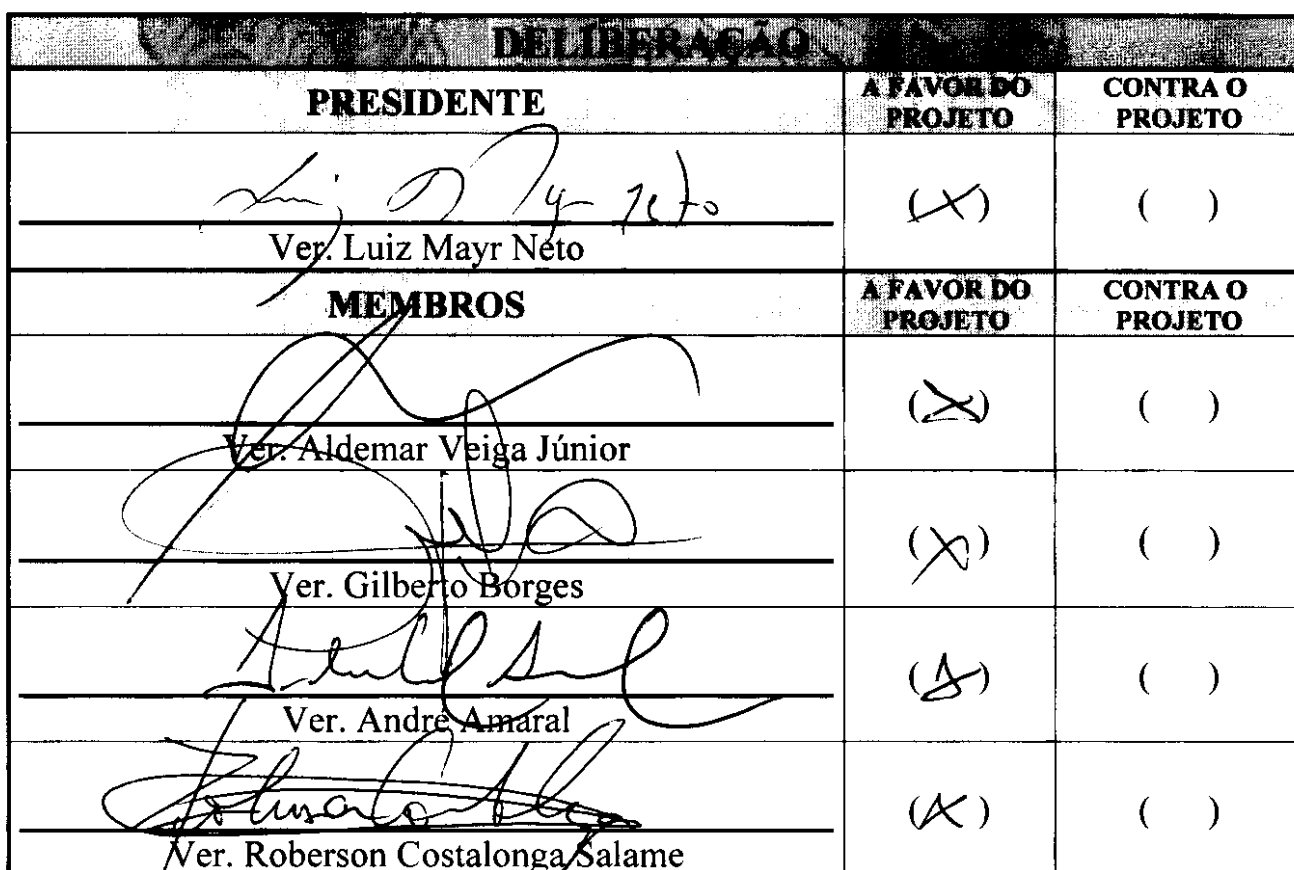 DELIBERAÇÃO
PRESIDENTE A FAVOR DO PROJETO CONTRA O PROJETO
Luiz Mayr Neto (X) ( )
Ver. Luiz Mayr Neto
MEMBROS A FAVOR DO PROJETO CONTRA O PROJETO
(X) ( )
Ver. Aldemar Veiga Júnior
(X) ( )
Ver. Gilberto Borges
(X) ( )
Ver. André Amaral
(X) ( )
Ver. Roberson Costalonga Salame